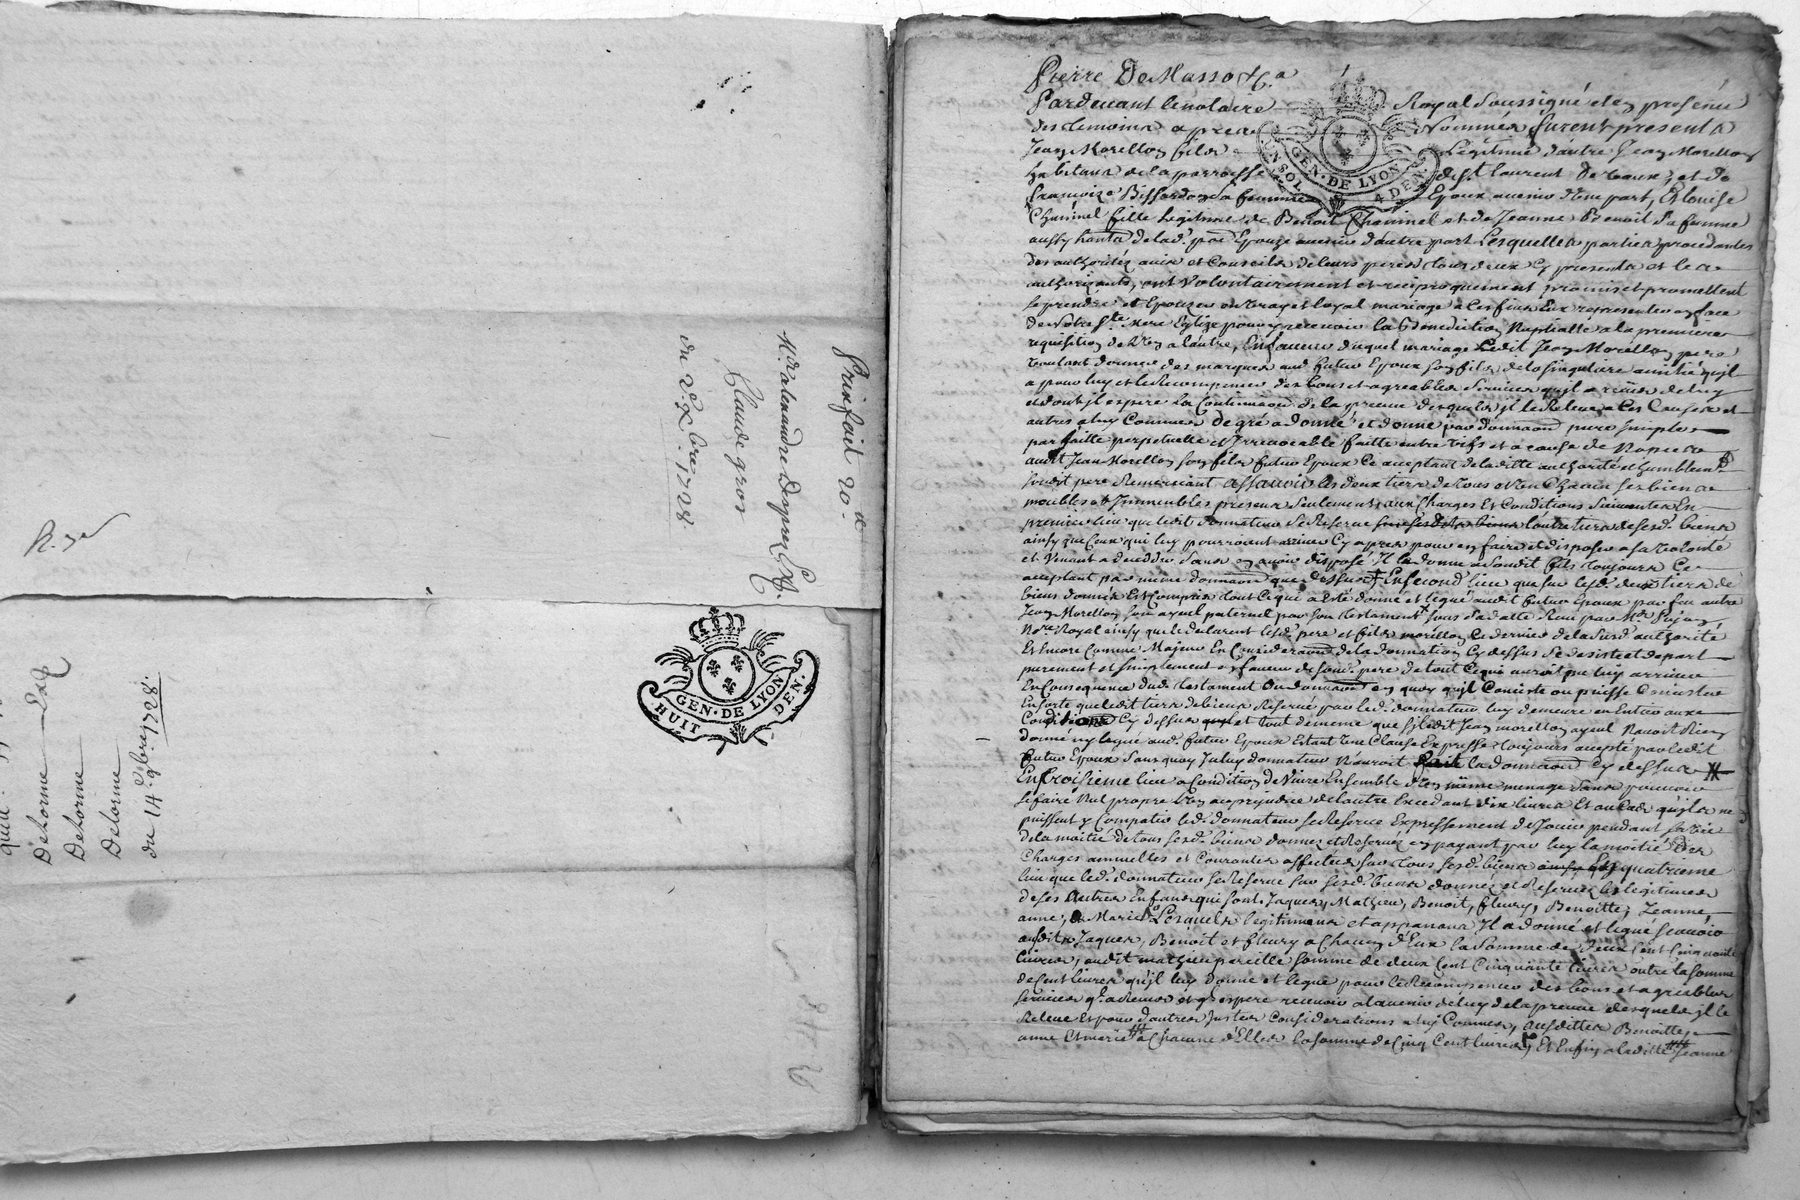 Prinfait 20.e
M.r alexandre Despres
Claude gros
du 2. 9.bre 1728
GEN. DE LYON
HUIT DEN.
Delorme
Delorme
Delorme
du 14.e 9bre 1728.
Pierre De Masso &.a
Pardevant le notaire Royal soussigné et en presence
des temoins apres Nommés furent presents
Jean Morellon fils Legitime d'autre Jean Morellon
GEN. DE LYON
SOL 4 DEN.
habitans de la parroisse de S.t laurent De vaux, et de
françoize Bissardon sa femme Epoux avenir d'une part, Et louise
Charinel fille legitime de Benoit Charinel et de Jeanne Benoit sa femme
aussy hants de lad. par Epouze avenir d'autre part Lesquelles parties procedantes
des authoritez avis et Conseils de leurs peres tous deux Cy presents et les
authorizants, ont volontairement et reciproquement promis et promettent
se prendre et Epouzer en vray et loyal mariage a Ces fins Eux representer en face
de Notre S.te Mere Eglize pour y recevoir la Benediction Nuptialle a la premiere
requisition de l'un a l'autre, En faveur duquel mariage Ledit Jean Morellon pere
voulant donner des marques aud. futur Epoux son fils de la singuliere amitié qu'il
a pour luy et le Recompenser des bons et agreables services qu'il a reçus de luy
et dont il espere la Continuaon de la preuve desquels il le Releve a Ces Causes et
autres a luy Connues De gré a donné et donne par donnaon pure simple
parfaitte perpetuelle et Irrevocable faitte entre vifs et a cause de Nopces
audit Jean Morellon son fils futur Epoux Ce acceptant de laditte authorité et humblement
sondit pere Remerciant assavoir les deux tiers de tous et Un Chacun ses biens
meubles et Immeubles presens seulement, aux Charges Et Conditions suivantes En
premier lieu que ledit donnateur se Reserve l'autre tiers de sesd. biens
ainsy que Ceux qui luy pourroient arriver Cy apres pour en faire et disposer a sa volonté
et Venant a deceder sans en avoir disposé Il le donne a sondit fils toujours Ce
acceptant par meme donnaon que dessus En second lieu que sur lesd. deux tiers de
biens donnés Est Compris tout Ce qui a eté donné et legué audit futur Epoux par feu autre
Jean Morellon son ayeul paternel par son testament sous sa datte Reçu par M.e
No.re Royal ainsy que le declarent lesd. pere et fils morellon Ce dernier de lad. authorité
Et Encore Comme Majeur En Consideraon de la donnation Cy dessus se desiste et depart
purement et simplement en faveur de sond. pere de tout Ce qui auroit pu luy arriver
En Consequence dud. testament ou donnaon en quoy qu'il Conciste ou puisse Concister
En sorte que ledit tiers de biens Reservé par led. donnateur luy demeure en Entier aux
Conditions Cy dessus et tout de meme que si ledit Jean morellon ayeul N'avoit Rien
donné ny legué aud. futur Epoux Estant Une Clause Expresse toujours accepté par ledit
futur Epoux sans quoy Ledit donnateur N'auroit fait la donnaon Cy dessus
En troisieme lieu a Condition de Vivre Ensemble d'un même menage sans pouvoir
se faire Nul propre l'un au prejudice de l'autre Excedant dix livres Et au Cas qu'ils ne
puissent y Compatir led. donnateur se Reserve Expressement de Jouir pendant sa vie
de la moitié de tous sesd. biens donnez et Reservez en payant par luy la moitié Des
Charges annuelles et Courantes affectées sur tous sesd. biens En quatrieme
lieu que led. donnateur se Reserve sur sesd. biens donnez et Reservez les legitimes
de ses Autres Enfans qui sont Jaques, Mathieu, Benoit, fleury, Benoitte, Jeanne,
anne, & Marie Lesquels legitimes et appanaux Il a donné et legué scavoir
ausdits Jaques, Benoit et fleury a Chacun d'Eux la somme de deux Cent Cinquante
livres, audit mathieu pareille somme de deux Cent Cinquante livres outre la somme
de Cent livres qu'il luy donne et legue pour le Recompenser des bons et agreables
services q'l a Reçus et q'l espere recevoir a l'avenir de luy de la preuve desquels il le
Releve Et pour d'autres Justes Considerations a luy Connues, ausdittes Benoitte,
anne Et marie a Chacune d'Elles la somme de Cinq Cent livres, Et Enfin a laditte Jeanne